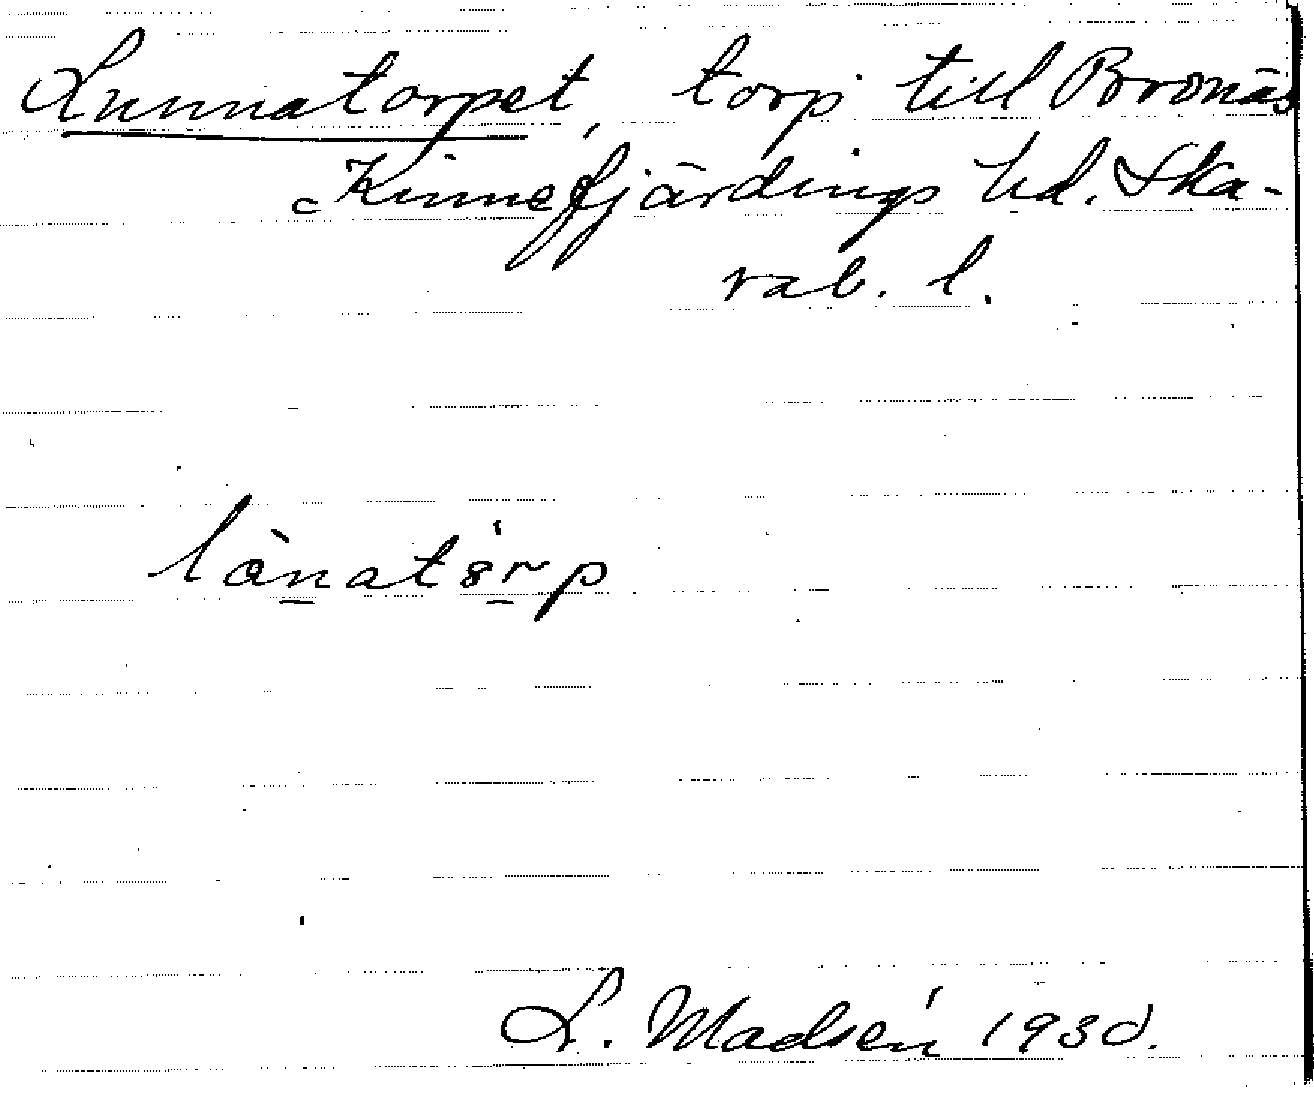 Lunnatorpet, torp till Bronäs
Kinnefjärdings hd. Ska-
rab. l.
lànatörp
L. Madsén 1930.